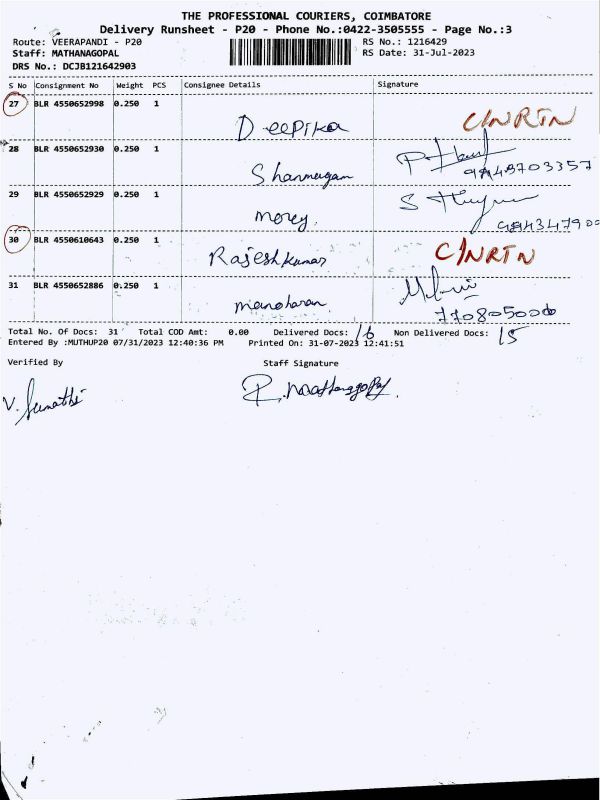 THE PROFESSIONAL COURIERS, COIMBATORE
Delivery Runsheet - P20 - Phone No.:0422-3505555 - Page No.:3
Route: VEERAPANDI - P20 RS No.: 1216429
Staff: MATHANAGOPAL RS Date: 31-Jul-2023
DRS No.: DCJB121642903
S No Consignment No Weight PCS Consignee Details Signature
27 BLR 4550652998 0.250 1
Deepika C/NRTN
28 BLR 4550652930 0.250 1
Shanmugam
29 BLR 4550652929 0.250 1
morey.
30 BLR 4550610643 0.250 1
Rajeshkumar C/NRTN
31 BLR 4550652886 0.250 1
manoharan 7708050000
Total No. Of Docs: 31 Total COD Amt: 0.00 Delivered Docs: 16 Non Delivered Docs: 15
Entered By :MUTHUP20 07/31/2023 12:40:36 PM Printed On: 31-07-2023 12:41:51
Verified By Staff Signature
V. Sumathi